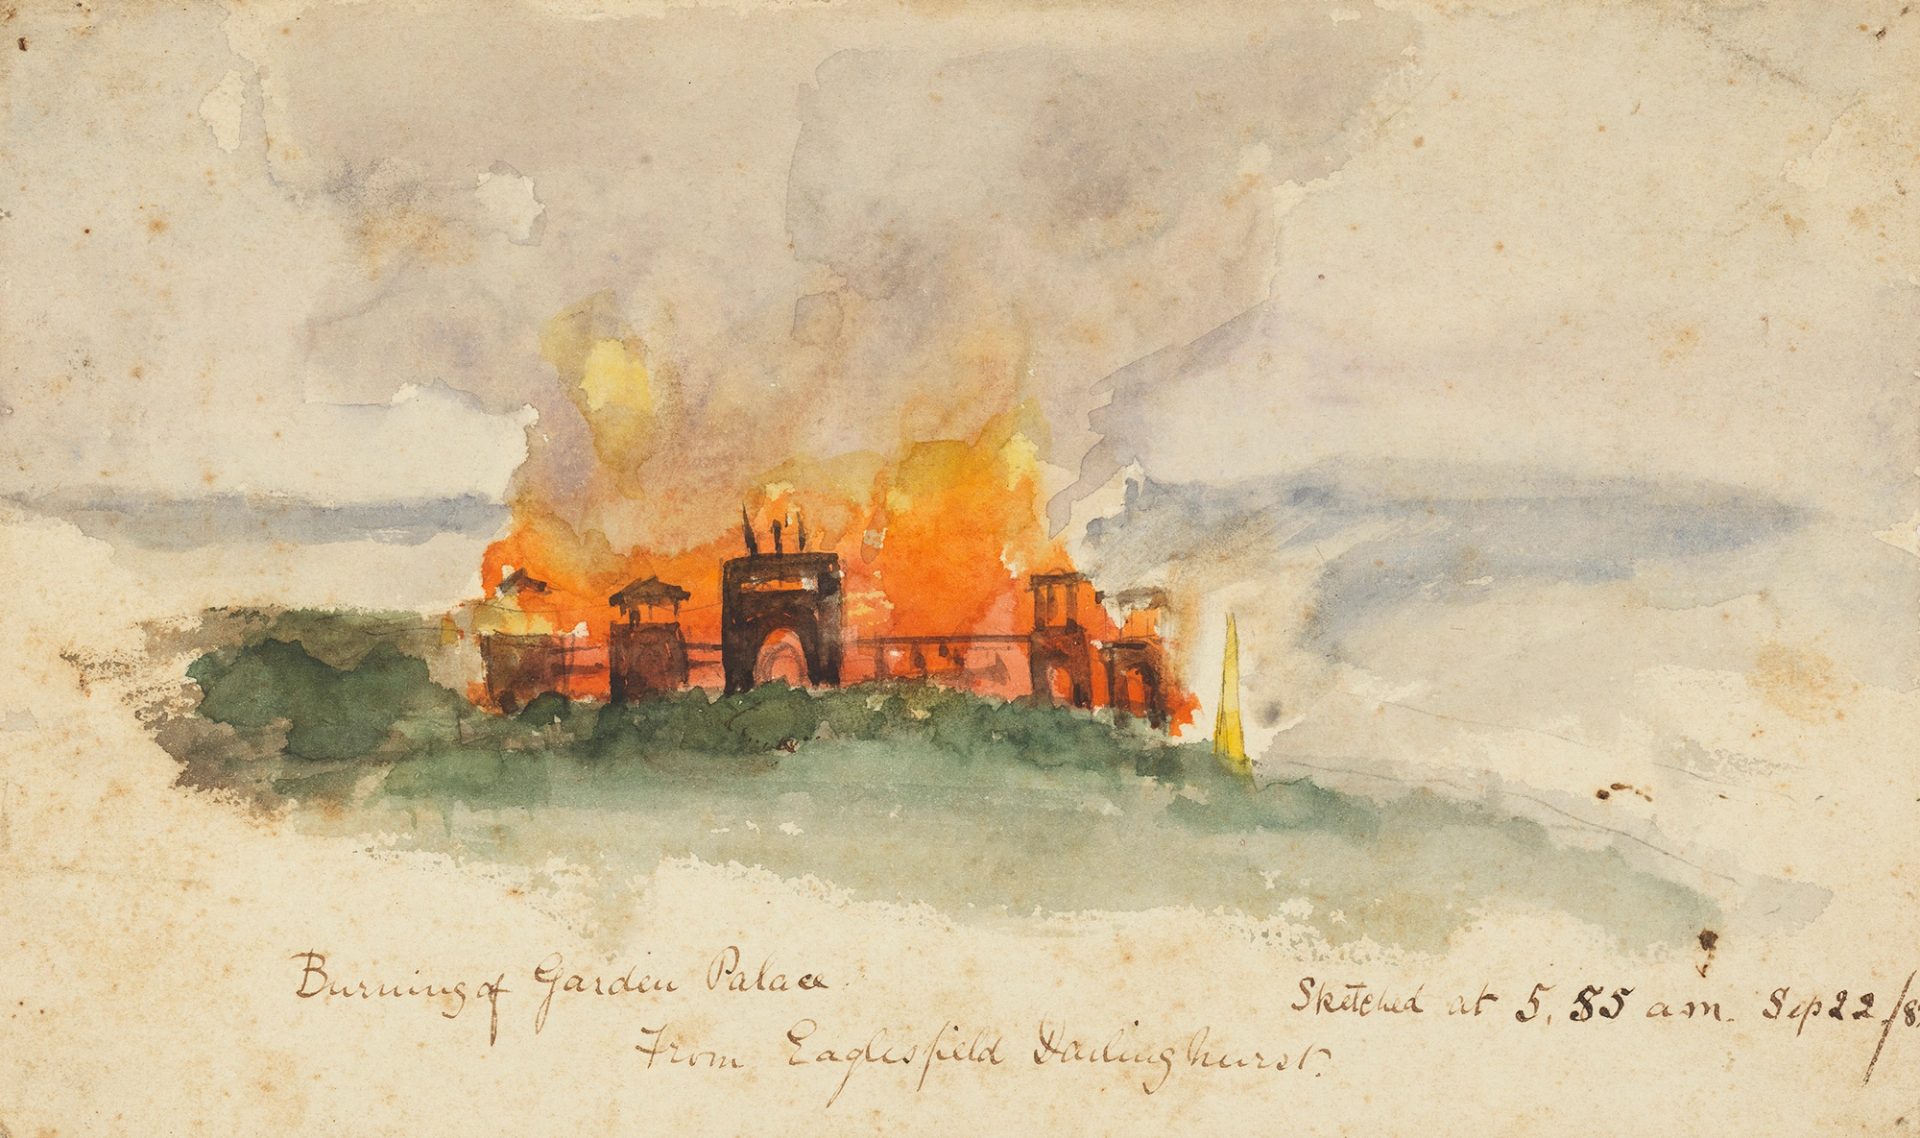 Burning of Garden Palace
Sketched at 5.55 a.m. Sep 22/8
From Eaglesfield Darlinghurst.